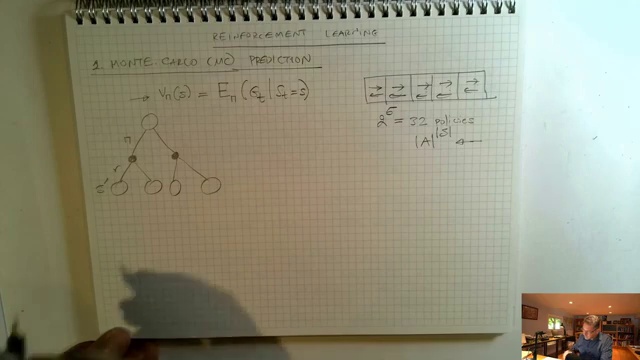 REINFORCEMENT LEARNING
1. MONTE CARLO (MC) PREDICTION
→ Vπ(s) = Eπ(Gt | St = s)
2^5 = 32 policies
|A|^|S| ←
π
r
s'